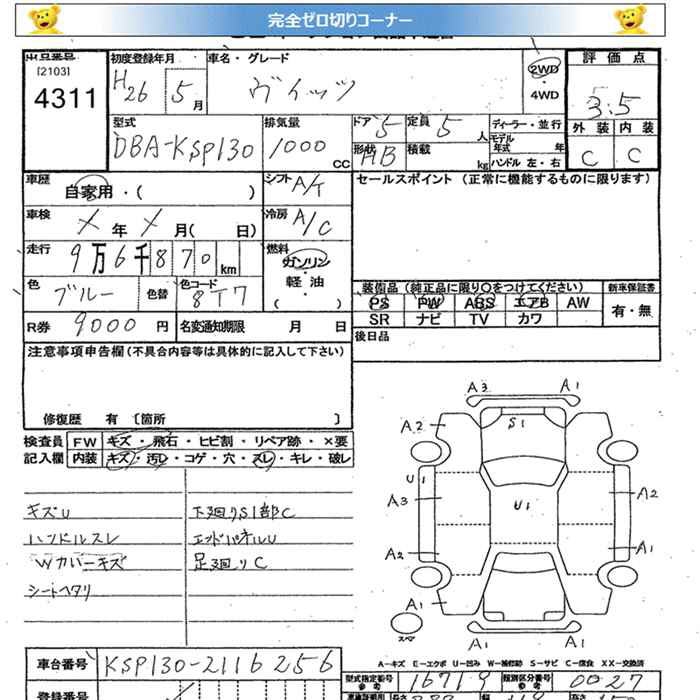 完全ゼロ切りコーナー
出品番号 初度登録年月 車名・グレード 評価点
[2103]
4311
H26 5月 ヴィッツ 2WD・4WD 3.5
型式 排気量 ドア 5 定員 5人 ディーラー・並行 外装 内装
DBA-KSP130 1000cc 形状 HB 積載 kg モデル年式 年 ハンドル 左・右 C C
車歴 自家用・( ) シフト A/T セールスポイント (正常に機能するものに限ります)
車検 X年 X月( 日) 冷房 A/C
走行 9万6千870km 燃料 ガソリン・軽油・( )
色 ブルー 色替 色コード 8T7
装備品 (純正品に限り○をつけてください) 新車保証書
PS PW ABS エアB AW 有・無
SR ナビ TV カワ
R券 9000円 名変通知期限 月 日 後日品
注意事項申告欄(不具合内容等は具体的に記入して下さい)
修復歴 有 〔箇所 〕
検査員 FW キズ・飛石・ヒビ割・リペア跡・×要
記入欄 内装 キズ・汚レ・コゲ・穴・スレ・キレ・破レ
キズU 下廻りS1部C
ハンドルスレ エンドパネルU
Wカバーキズ 足廻りC
シートヘタリ
A3 A1
A2 S1 A1
U1
A3 U1 A2
A2 A1
A1 A1
スペア
A1 A1
A-キズ E-エクボ U-凹み W-補修跡 S-サビ C-腐食 XX-交換済
車台番号 KSP130-2116256 型式指定番号 参考 16719 類別区分番号 参考 0027
登録番号